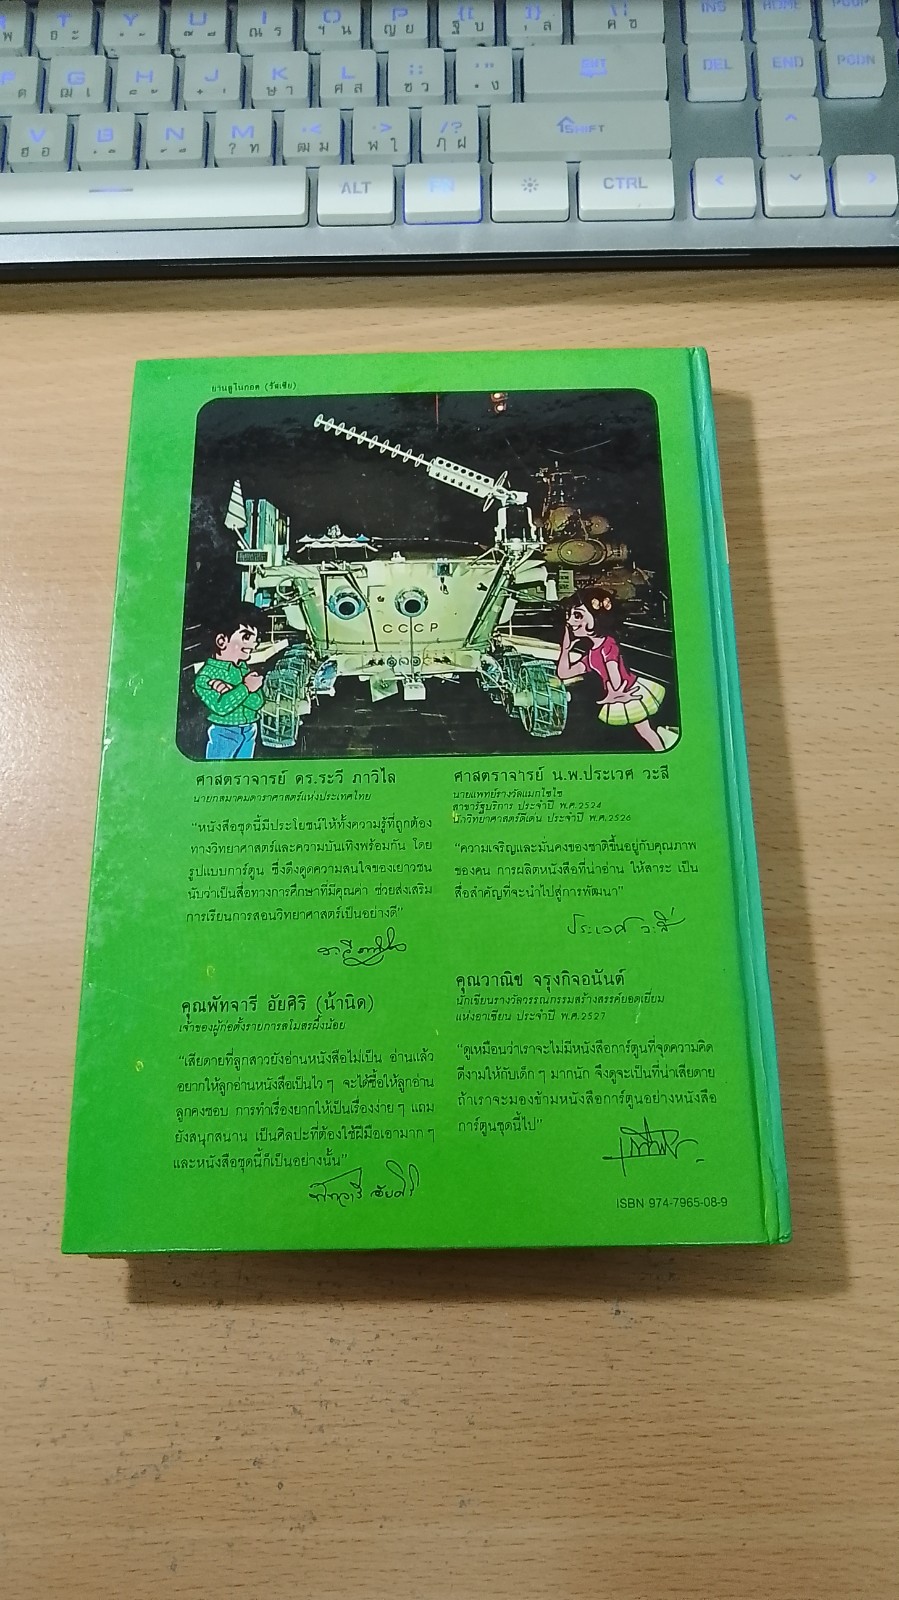 T Y U I O P {[ }] \|
พ ธ ะ ณ ร ฯ น ญ ย ฐ บ , ล ฅ ฃ
INS HOME PGUP
F G H J K L
ด ฌ เ ษ า ศ ส ซ ว . ง
ENT
DEL END PGDN
V B N M
ฮ อ ? ท ฒ ม ฬ ใ ฦ ฝ
SHIFT
ALT FN CTRL
ยานลูโนกอต (รัสเซีย)
CCCP
ศาสตราจารย์ ดร.ระวี ภาวิไล
นายกสมาคมดาราศาสตร์แห่งประเทศไทย
"หนังสือชุดนี้มีประโยชน์ให้ทั้งความรู้ที่ถูกต้อง
ทางวิทยาศาสตร์และความบันเทิงพร้อมกัน โดย
รูปแบบการ์ตูน ซึ่งดึงดูดความสนใจของเยาวชน
นับว่าเป็นสื่อทางการศึกษาที่มีคุณค่า ช่วยส่งเสริม
การเรียนการสอนวิทยาศาสตร์เป็นอย่างดี"
ศาสตราจารย์ น.พ.ประเวศ วะสี
นายแพทย์รางวัลแมกไซไซ
สาขารัฐบริการ ประจำปี พ.ศ.2524
นักวิทยาศาสตร์ดีเด่น ประจำปี พ.ศ.2526
"ความเจริญและมั่นคงของชาติขึ้นอยู่กับคุณภาพ
ของคน การผลิตหนังสือที่น่าอ่าน ให้สาระ เป็น
สื่อสำคัญที่จะนำไปสู่การพัฒนา"
ประเวศ วะสี
คุณพัทจารี อัยศิริ (น้านิด)
เจ้าของผู้ก่อตั้งรายการสโมสรผึ้งน้อย
"เสียดายที่ลูกสาวยังอ่านหนังสือไม่เป็น อ่านแล้ว
อยากให้ลูกอ่านหนังสือเป็นไวๆ จะได้ซื้อให้ลูกอ่าน
ลูกคงชอบ การทำเรื่องยากให้เป็นเรื่องง่ายๆ แถม
ยังสนุกสนาน เป็นศิลปะที่ต้องใช้ฝีมือเอามากๆ
และหนังสือชุดนี้ก็เป็นอย่างนั้น"
พัทจารี อัยศิริ
คุณวาณิช จรุงกิจอนันต์
นักเขียนรางวัลวรรณกรรมสร้างสรรค์ยอดเยี่ยม
แห่งอาเซียน ประจำปี พ.ศ.2527
"ดูเหมือนว่าเราจะไม่มีหนังสือการ์ตูนที่จุดความคิด
ดีงามให้กับเด็กๆ มากนัก จึงดูจะเป็นที่น่าเสียดาย
ถ้าเราจะมองข้ามหนังสือการ์ตูนอย่างหนังสือ
การ์ตูนชุดนี้ไป"
ISBN 974-7965-08-9